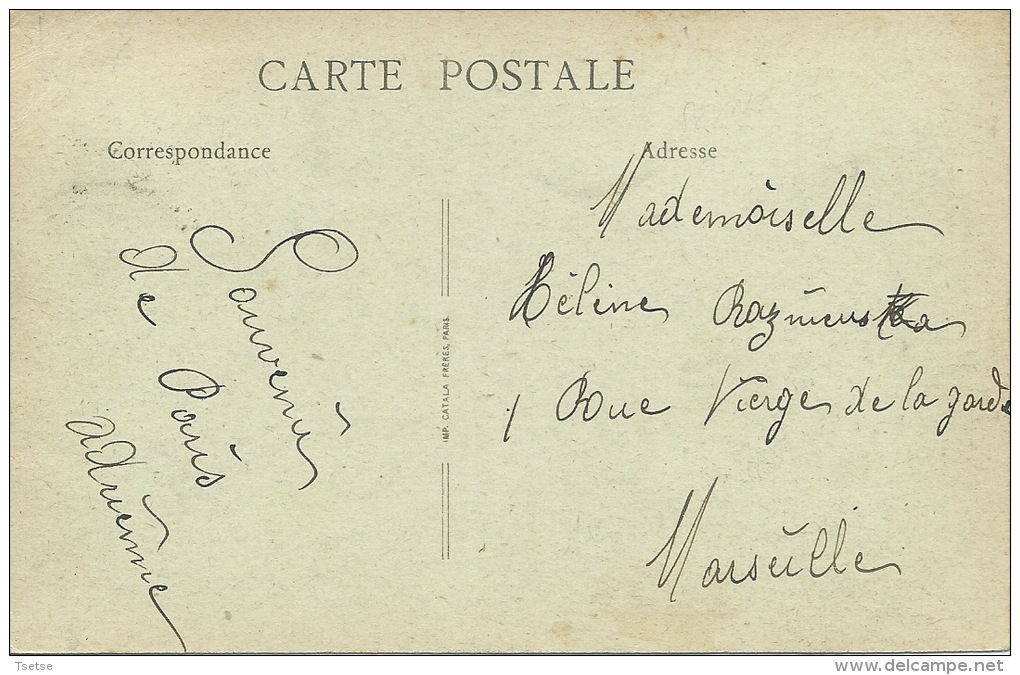 CARTE POSTALE
Correspondance
Adresse
Souvenir
de Paris
Adrienne
IMP. CATALA FRÈRES, PARIS.
Mademoiselle
Hélène
1 Rue Vierge de la garde
Marseille
Tsetse
www.delcampe.net